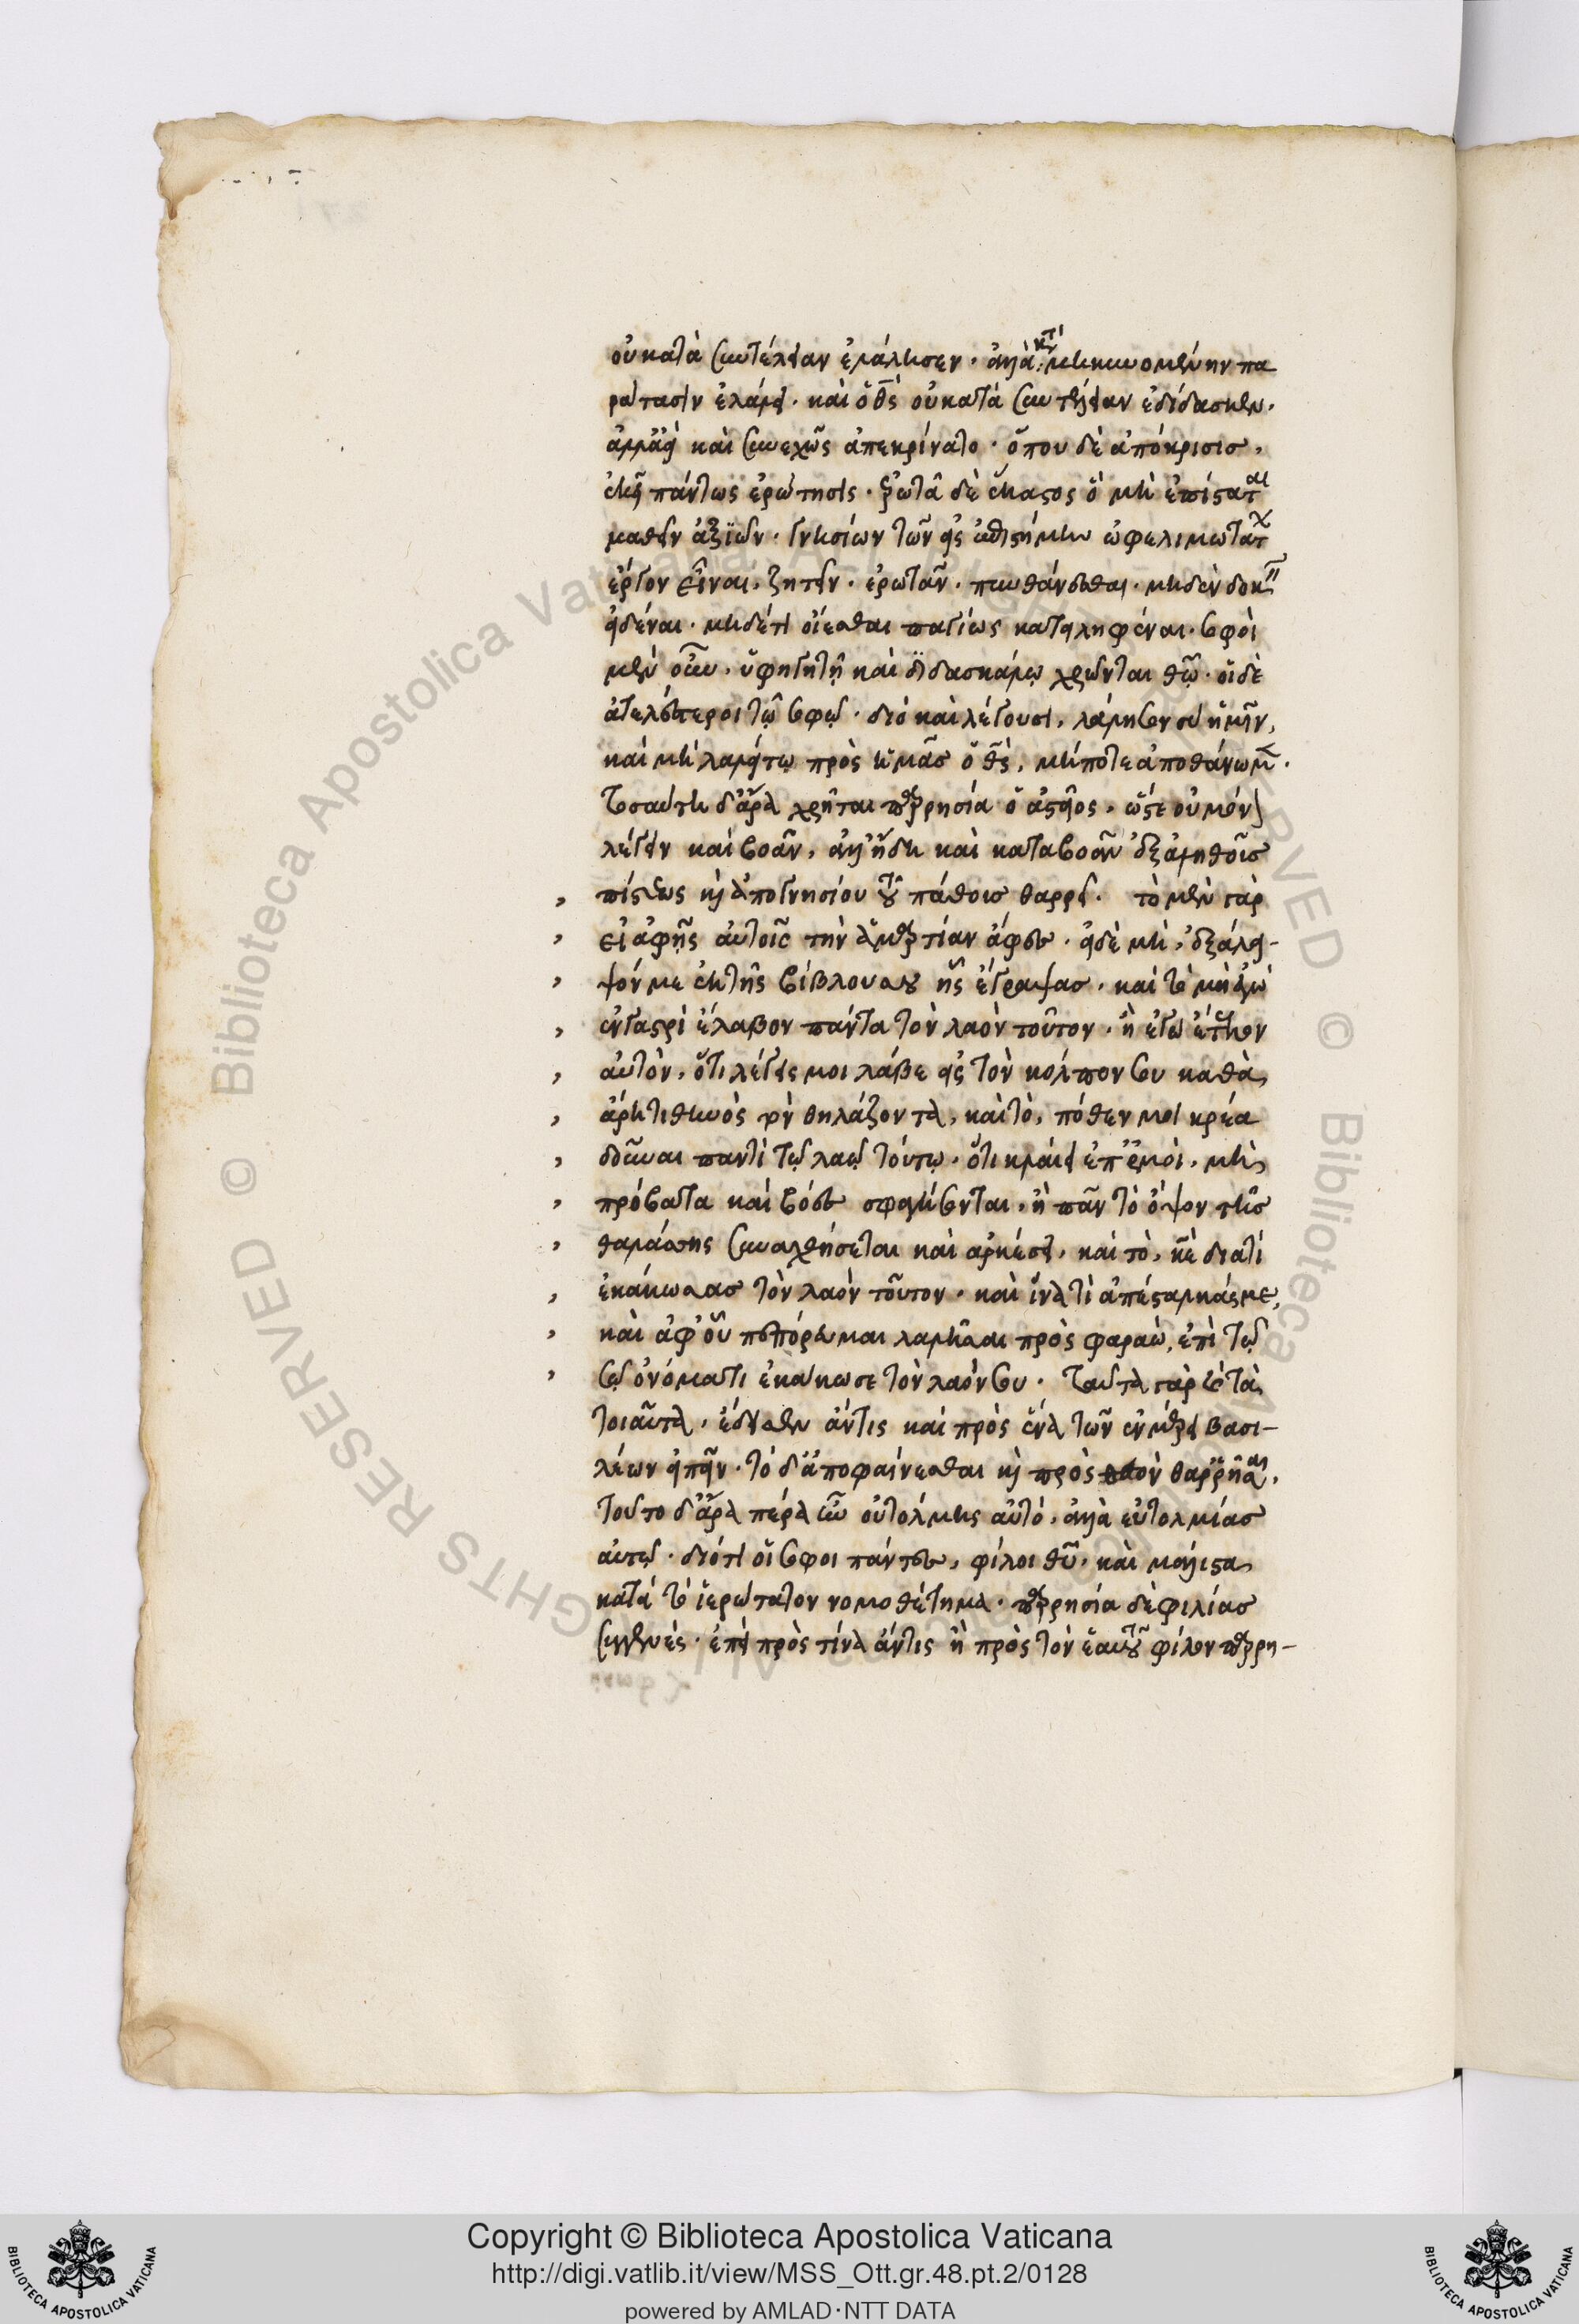 οὐ κατὰ συντέλειαν ἐλάλησεν· ἀλλὰ κατὰ μηκυνομένην πα
ράτασιν ἐλάλει· καὶ ὁ θς οὐ κατὰ συντέλειαν ἐδίδασκεν·
ἀλλ' ἀεὶ καὶ συνεχῶς ἀπεκρίνατο· ὅπου δὲ ἀπόκρισις,
ἐκεῖ πάντως ἐρώτησις· ἐρωτᾶ δὲ ἕκαστος ὃ μὴ ἐπίσταται
μαθεῖν ἀξιῶν· γνησίων τῶν εἰς ἐπιστήμην ὠφελιμώτατον
ἔργον εἶναι, ζητεῖν· ἐρωτᾶν· πυνθάνεσθαι· μηδὲν δοκεῖν
εἰδέναι· μηδέ τι οἴεσθαι παγίως κατειληφέναι· σοφοὶ
μὲν οὖν, ὑφηγητῇ καὶ διδασκάλῳ χρῶνται θῶ· οἱ δὲ
ἀτελέστεροι τῷ σοφῷ· διὸ καὶ λέγουσι, λάλησον σὺ ἡμῖν,
καὶ μὴ λαλείτω πρὸς ἡμᾶς ὁ θς, μήποτε ἀποθάνωμεν·
τοσαύτη δ' ἄρα χρῆται παρρησία ὁ ἀστεῖος, ὥστε οὐ μόνον
λέγειν καὶ βοᾶν, ἀλλ' ἤδη καὶ καταβοᾶν ἐξ ἀληθοῦς
πίστεως καὶ ἀπὸ γνησίου τοῦ πάθους θαρρεῖ· τὸ μὲν γὰρ
εἰ ἀφῇς αὐτοῖς τὴν ἁμαρτίαν ἄφες· εἰ δὲ μὴ, ἐξάλει-
ψόν με ἐκ τῆς βίβλου σου ἧς ἔγραψας· καὶ τὸ μὴ ἐγὼ
ἐν γαστρὶ ἔλαβον πάντα τὸν λαὸν τοῦτον· ἢ ἐγὼ ἔτεκον
αὐτὸν, ὅτι λέγεις μοι λάβε εἰς τὸν κόλπον σου καθὰ,
ἄρῃ τιθηνὸς τὸν θηλάζοντα, καὶ τὸ, πόθεν μοι κρέα
δοῦναι παντὶ τῷ λαῷ τούτῳ· ὅτι κλαίει ἐπ' ἐμοὶ, μὴ,
πρόβατα καὶ βόες σφαγήσονται, ἢ πᾶν τὸ ὄψον τῆς
θαλάσσης συναχθήσεται καὶ ἀρκέσει, καὶ τὸ, κε διατί
ἐκάκωσας τὸν λαὸν τοῦτον· καὶ ἵνα τί ἀπέσταλκάς με,
καὶ ἀφ' οὗ πεπόρευμαι λαλῆσαι πρὸς φαραὼ, ἐπὶ τῷ
σῷ ὀνόματι ἐκάκωσε τὸν λαόν σου· ταῦτα γὰρ καὶ τὰ
τοιαῦτα, ἔδεισεν ἄν τις καὶ πρὸς ἕνα τῶν ἐν μέρει βασι-
λέων εἰπεῖν· τὸ δ' ἀποφαίνεσθαι καὶ πρὸς θεὸν θαρρῆσαι,
τοῦτο δ' ἄρα πέρας οὐ τόλμης αὐτό, ἀλλὰ εὐτολμίας
αὐτῷ· διότι οἱ σοφοὶ πάντες, φίλοι θῦ· καὶ μάλιστα
κατὰ τὸ ἱερώτατον νομοθέτημα· παρρησία δὲ φιλίας
συγγενὲς· ἐπεὶ πρὸς τίνα ἄν τις ἢ πρὸς τὸν ἑαυτοῦ φίλον παρρη-
Copyright © Biblioteca Apostolica Vaticana
http://digi.vatlib.it/view/MSS_Ott.gr.48.pt.2/0128
powered by AMLAD·NTT DATA